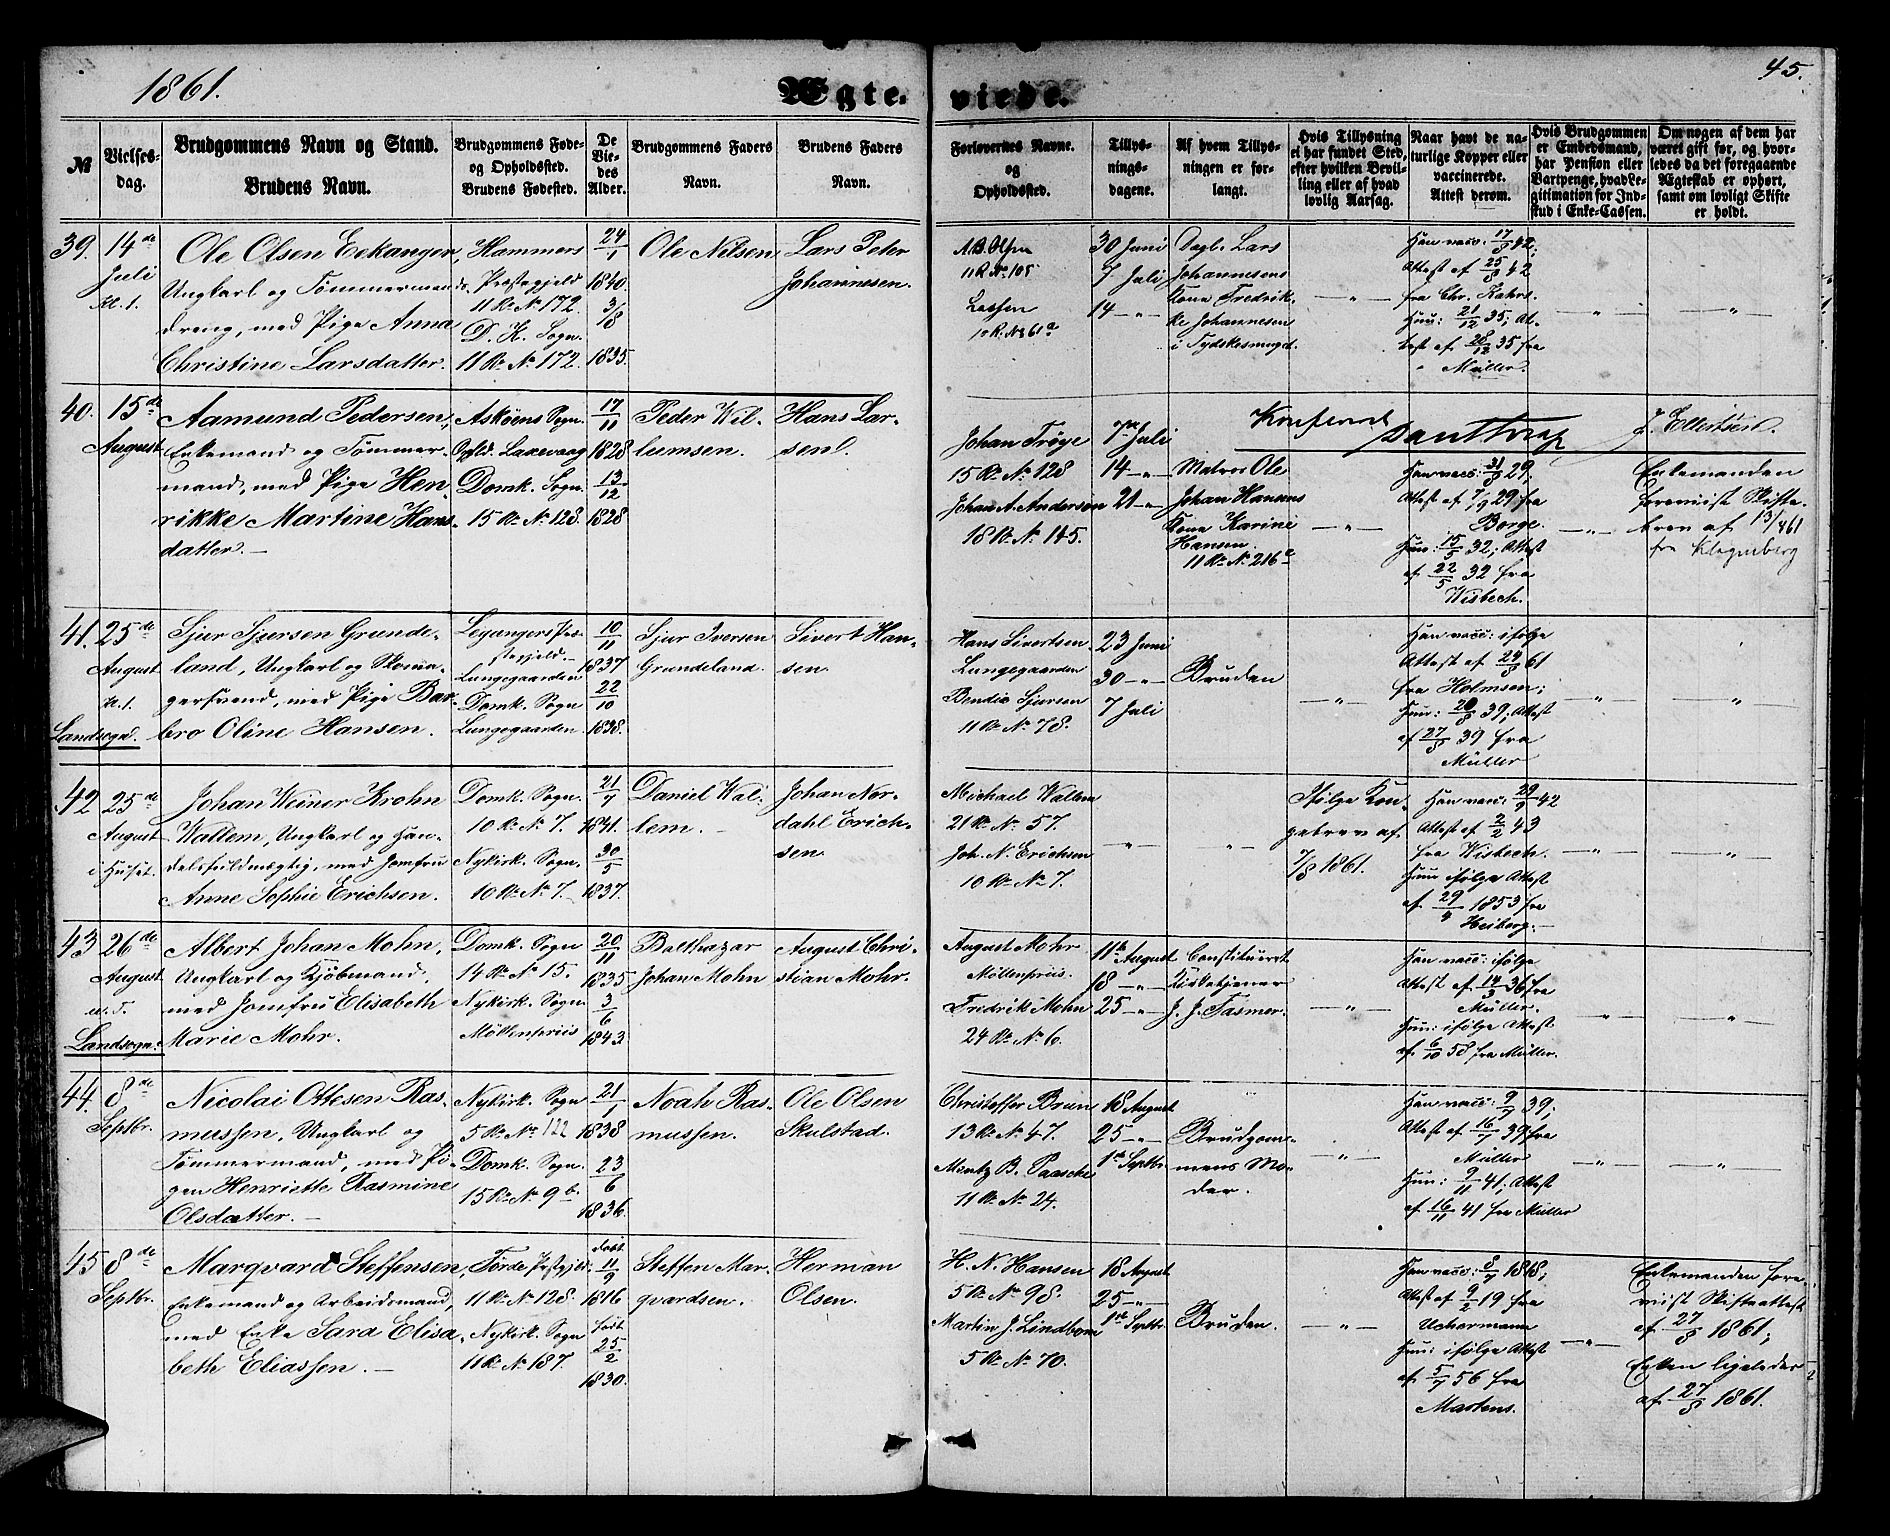 1861.
Ægte-
viede.
45.
№
Vielses-
dag.
Brudgommens Navn og Stand.
Brudens Navn.
Brudgommens Føde-
og Opholdssted.
Brudens Fødested.
De
Vie-
des
Alder.
Brudgommens Faders
Navn.
Brudens Faders
Navn.
Forlovernes Navne.
og
Opholdssted.
Tillys-
nings-
dagene.
Af hvem Tillys-
ningen er for-
langt.
Hvis Tillysning
ei har fundet Sted,
efter hvilken Bevil-
ling eller af hvad
lovlig Aarsag.
Naar havt de na-
turlige Kopper eller
vaccinerede.
Attest derom.
Hvis Brudgommen
er Embedsmand,
har Pension eller
Vartpenge, hvad Le-
gitimation for Ind-
skud i Enke-Cassen.
Om nogen af dem har
været gift før, og hvor-
ledes da det foregaaende
Ægteskab er ophørt,
samt om lovligt Skifte
er holdt.
39.
14de
Juli
kl. 1.
Ole Olsen Eekanger,
Ungkarl og Tømmermen
dreng, med Pige Anna
Christine Larsdatter.
Hammers
Præstegjeld
11 R. No 172.
D. K. Sogn.
11 R. No 172.
24/1
1840.
3/8
1835.
Ole Nilsen
Lars Peter
Johannesen.
A. B. Olsen
11 R. No 105
Lassen
10 R. No 61a
30 Juni
7 Juli
14 —"—
Dagl. Lars
Johannesens
Kone Fredrik-
ke Johannesen
i Tydskesmuget.
—"—
Han vacc: 17/8 42;
Attest af 25/8 42
fra Chr. Kahrs.
Hun: 21/12 35; At-
test af 28/12 35 fra
Müller.
—"—
—"—
40.
15de
August
Aamund Pedersen,
Enkemand og Tømmer-
mand, med Pige Hen-
rikke Martine Hans-
datter. —
Askøens Sogn.
Opld. Laxevaag
Domk. Sogn.
15 R. No 128.
17/11
1828
13/12
1828
Peder Wil-
lumsen.
Hans Lar-
sen.
Johan Trøye
15 R. No 128
Johan A. Andersen
18 R. No 145.
7de Juli
14 —"—
21 —"—
Matros Ole
Johan Hansens
Kone Karine
Hansen.
11 R. No 216a
Konfereret
J. Ellertsen.
—"—
Han vacc: 31/8 29;
Attest af 7/9 29 fra
Borge.
Hun: 15/5 32; Attest
af 22/5 32 fra
Wisbech.
—"—
Enkemanden
foreviist Skifte-
brev af 13/4 61
fra Klagenberg
41.
25de
August
kl. 1.
Landsogn.
Sjur Sjursen Grunde-
land, Ungkarl og Skoma-
gersvend, med Pige Bar-
bro Oline Hansen.
Leganger Præ-
stegjeld
Lungegaarden
Domk. Sogn
Lungegaarden
10/11
1837
22/10
1838.
Sjur Iversen
Grundeland.
Sivert Han-
sen.
Hans Sivertsen
Lungegaarden
Bendix Sjursen
11 R. No 78.
23 Juni
30 —"—
7 Juli
Bruden
—"—
Han vacc: ifølge
Attest af 24/8 61
fra Holmsen;
Hun: 20/8 39; Attest
af 27/8 39 fra
Müller
—"—
"
42
25de
August
i Huset.
Johan Weiner Krohn
Wallem, Ungkarl og Han-
delsfuldmægtig, med Jomfru
Anne Sophie Erichsen.
Domk. Sogn.
10 R. No 7.
Nykirk. Sogn.
10 R. No 7.
21/7
1841.
30/5
1837.
Daniel Wal-
lem. —
Johan Nor-
dahl Erich-
sen.
Michael Wallem
21 R. No 57.
Joh. N. Erichsen
10 R. No 7.
—"—
—"—
Ifølge Kon-
gebrev af
7/8 1861.
Han vacc: 29/9 42
Attest af 2/2 43
fra Wisbech.
Hun ifølge Attest
af 29/4 1853 fra
Heiberg.
—"—
—"—
43
26de
August
Landsogn.
Albert Johan Mohn,
Ungkarl og Kjøbmand,
med Jomfru Elisabeth
Marie Mohr.
Domk. Sogn
14 R. No 15.
Nykirk. Sogn
Møllenpriis
20/11
1835
3/6
1843.
Balthazar
Johan Mohn
August Chri-
stian Mohr.
August Mohr
Møllenpriis.
Fredrik Mohn
24 R. No 6.
11te August
18 —"—
25 —"—
Constitueret
Kirketjener
J. J. Tasmer.
—"—
Han vacc: ifølge
Attest af 14/3 36 fra
Müller.
Hun: ifølge Attest
af 6/10 58 fra Müller.
—"—
"
44.
8de
Septbr.
Nicolai Ottesen Ras-
mussen, Ungkarl og
Tømmermand, med Pi-
gen Henriette Rasmine
Olsdatter. —
Nykirk. Sogn
5 R. No 122
Domk. Sogn.
15 R. No 9b.
21/1
1838
23/6
1836.
Noah Ras-
mussen.
Ole Olsen
Skulstad.
Christoffer Brun
13 R. No 47.
Mentz B. Paasche
11 R. No 24.
18 August
25 —"—
1te Septbr.
Brudgom-
mens Mo-
der.
—"—
Han vacc: 9/7 39;
Attest af 16/7 39 fra
Müller
Hun: 9/11 41; Attest
af 16/11 41 fra Müller
—"—
—"—
45
8de
Septbr.
Marqvard Steffensen,
Enkemand og Arbeidsmand,
med Enke Sara Elisa-
beth Eliassen. —
Førde Præstgjeld
11 R. No 128.
Nykirk. Sogn
11 R. No 187.
døbt
11/9
1816
født
25/2
1830.
Steffen Mar-
qvardsen.
Herman
Olsen.
H. N. Hansen
5 R. No 98.
Martin J. Lindbom
5 R. No 70.
18 August
25 —"—
1ste Septbr.
Bruden.
—"—
Han vacc: 8/7 1818;
Attest af 9/2 19 fra
Uchermann
Hun: ifølge Attest
af 5/7 56 fra
Martens.
—"—
Enkemanden fore-
viist Skifteattest
af 27/8 1861;
Enken ligeledes
af 27/8 1861.